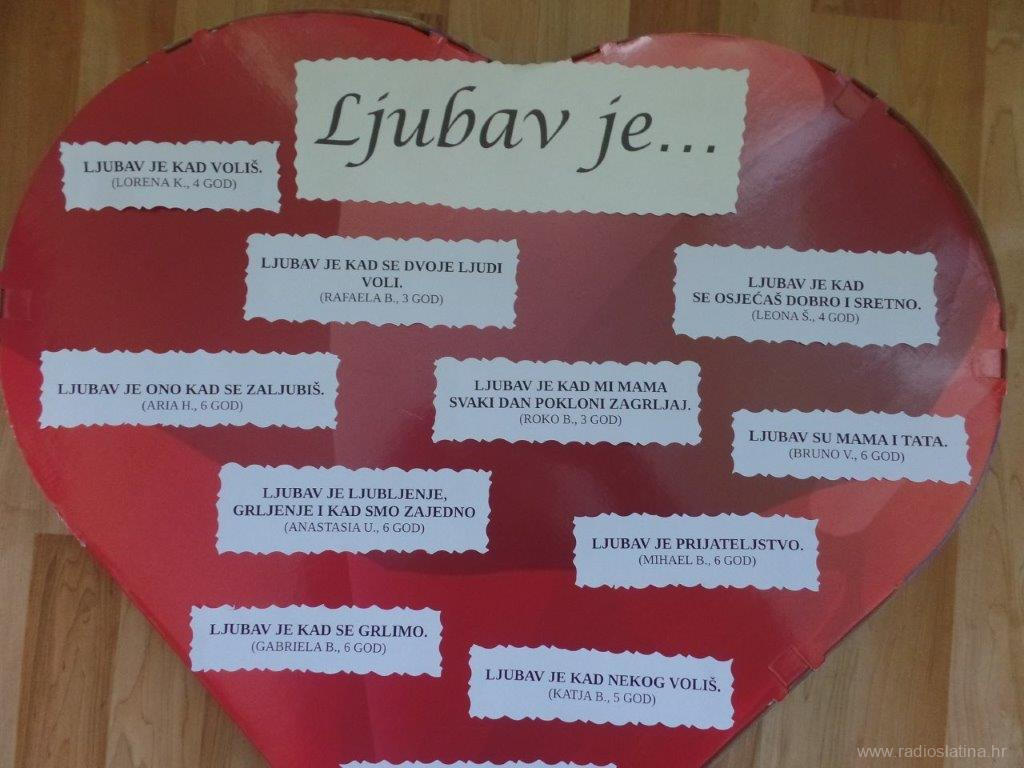 Ljubav je...
LJUBAV JE KAD VOLIŠ.
(LORENA K., 4 GOD)
LJUBAV JE KAD SE DVOJE LJUDI
VOLI.
(RAFAELA B., 3 GOD)
LJUBAV JE KAD
SE OSJEĆAŠ DOBRO I SRETNO.
(LEONA Š., 4 GOD)
LJUBAV JE ONO KAD SE ZALJUBIŠ.
(ARIA H., 6 GOD)
LJUBAV JE KAD MI MAMA
SVAKI DAN POKLONI ZAGRLJAJ.
(ROKO B., 3 GOD)
LJUBAV SU MAMA I TATA.
(BRUNO V., 6 GOD)
LJUBAV JE LJUBLJENJE,
GRLJENJE I KAD SMO ZAJEDNO
(ANASTASIA U., 6 GOD)
LJUBAV JE PRIJATELJSTVO.
(MIHAEL B., 6 GOD)
LJUBAV JE KAD SE GRLIMO.
(GABRIELA B., 6 GOD)
LJUBAV JE KAD NEKOG VOLIŠ.
(KATJA B., 5 GOD)
www.radioslatina.hr